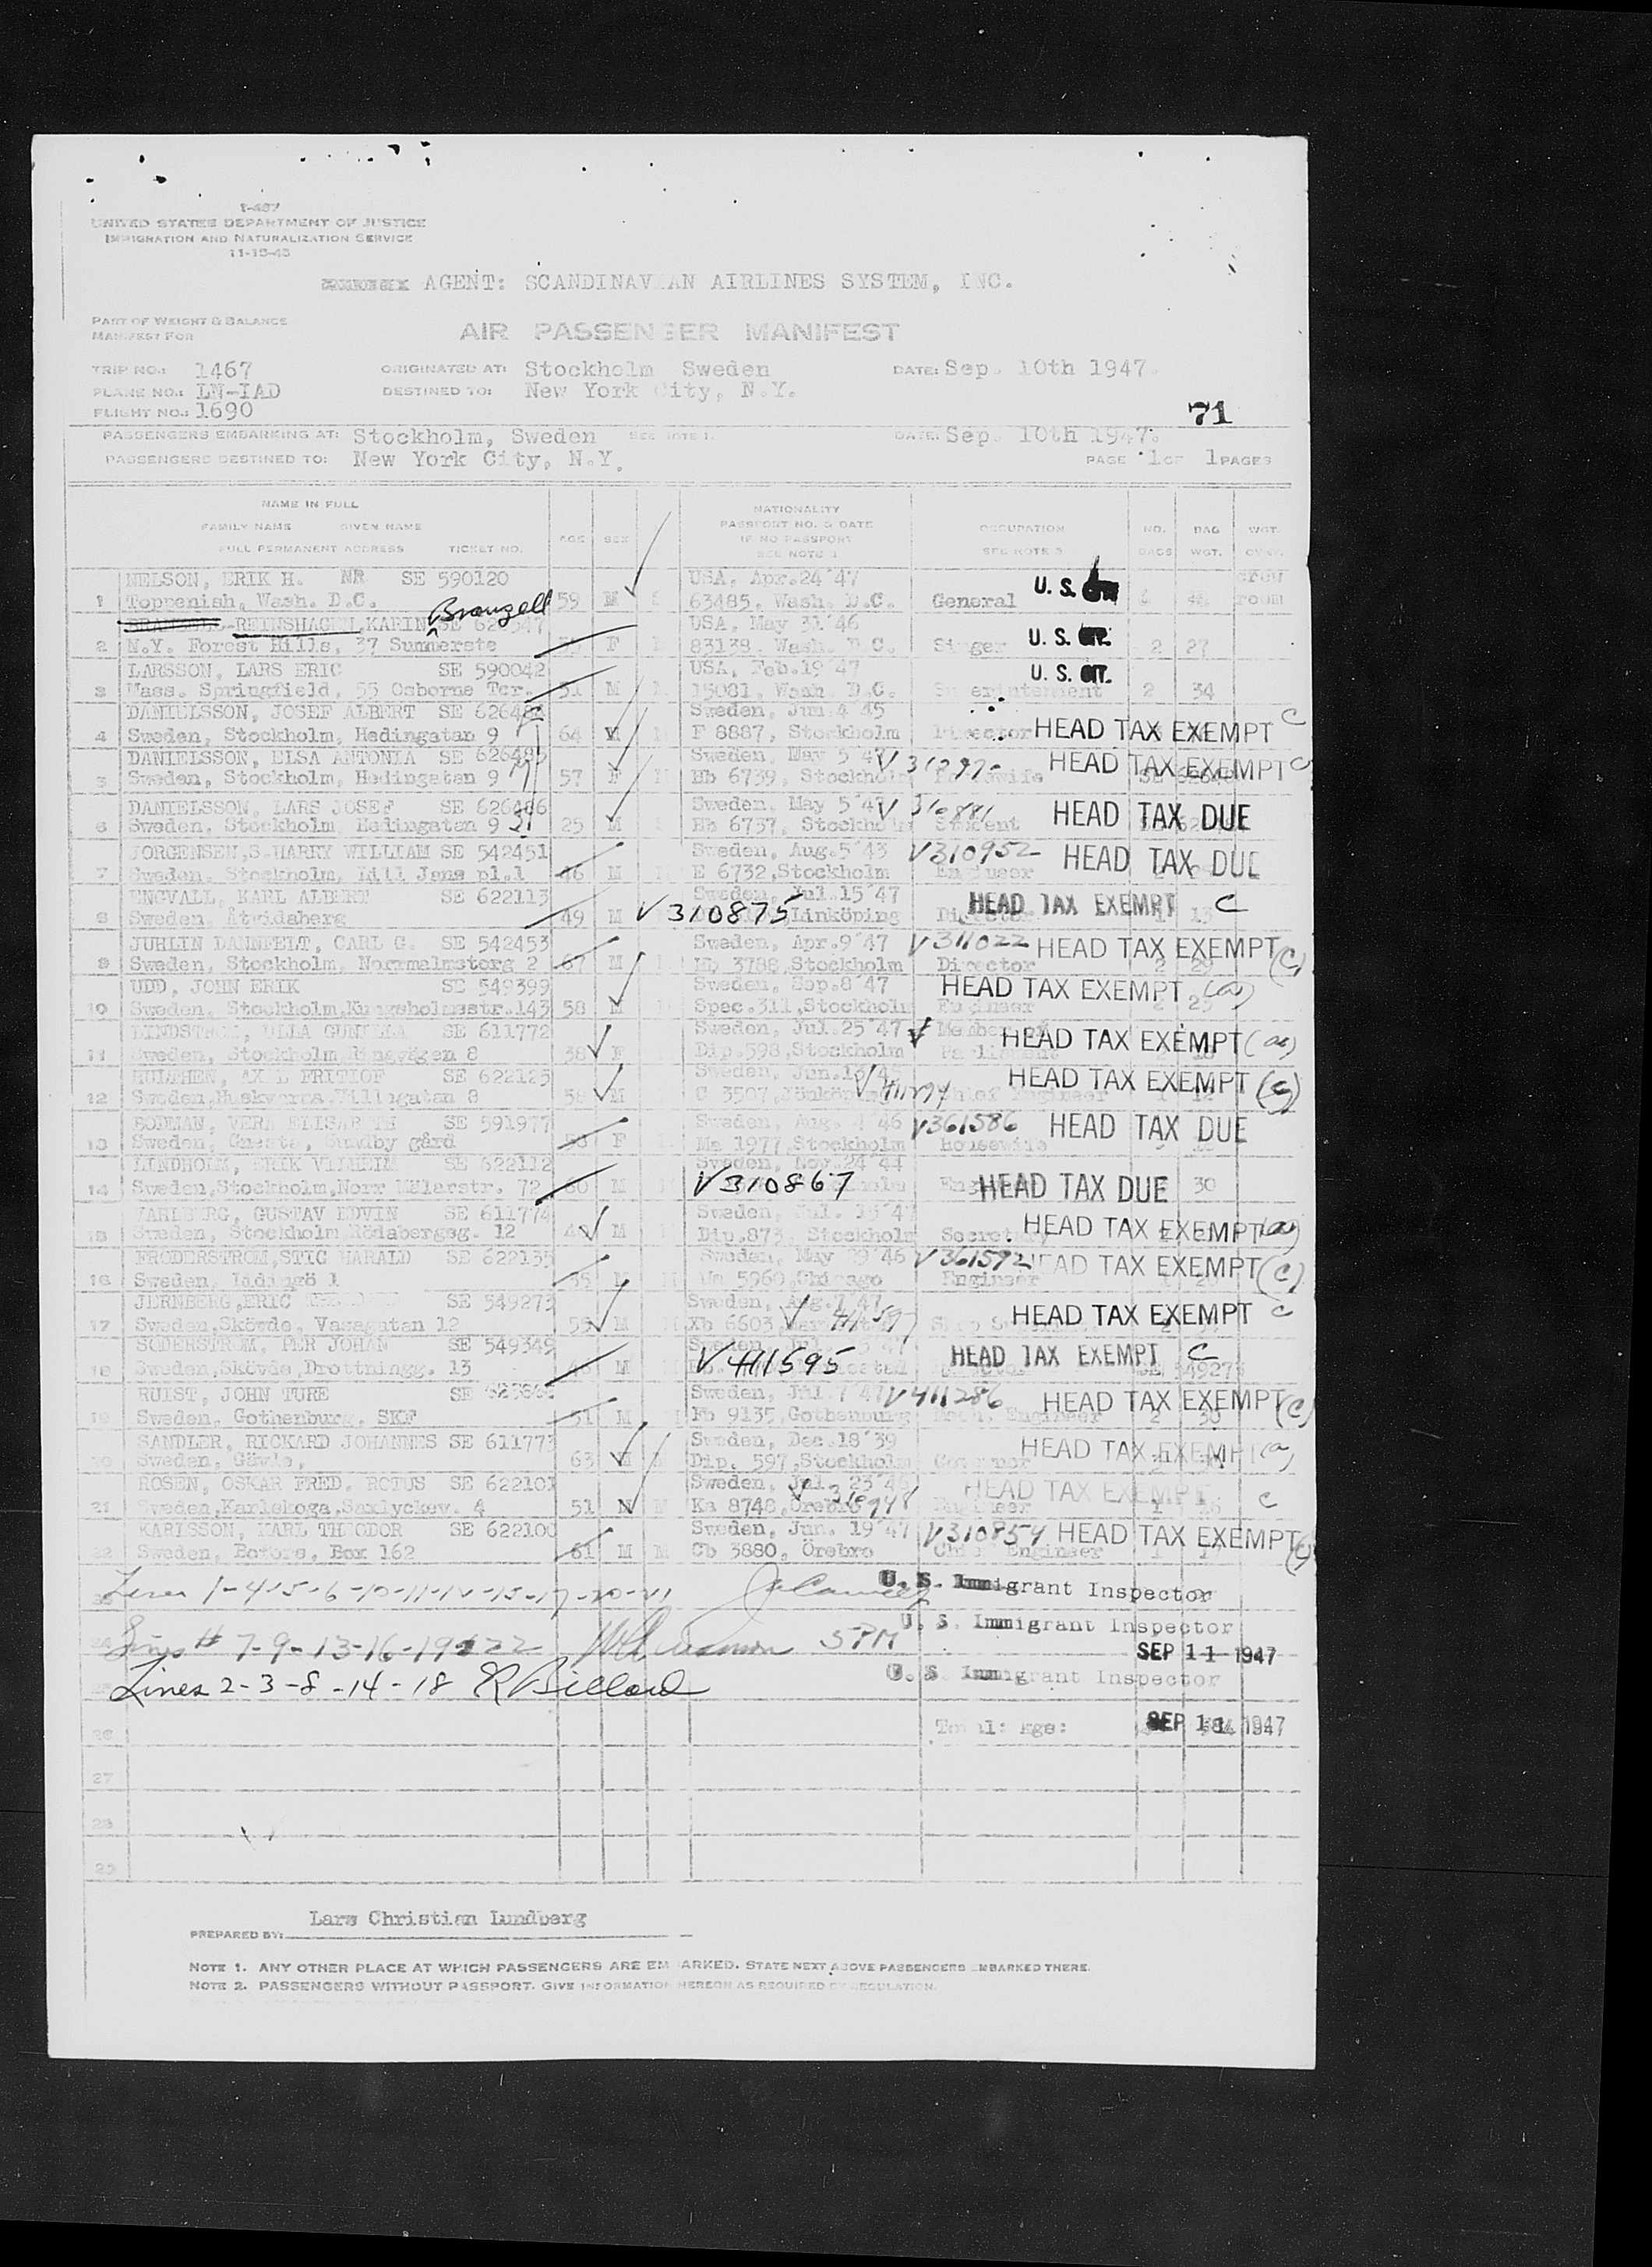 I-467
UNITED STATES DEPARTMENT OF JUSTICE
IMMIGRATION AND NATURALIZATION SERVICE
11-15-45
AGENT: SCANDINAVIAN AIRLINES SYSTEM, INC.
PART OF WEIGHT & BALANCE
MANIFEST FOR
AIR PASSENGER MANIFEST
TRIP NO.: 1467 ORIGINATED AT: Stockholm Sweden DATE: Sep. 10th 1947.
PLANE NO.: LN-IAD DESTINED TO: New York City, N.Y.
FLIGHT NO.: 1690
71
PASSENGERS EMBARKING AT: Stockholm, Sweden SEE NOTE 1. DATE: Sep. 10th 1947.
PASSENGERS DESTINED TO: New York City, N.Y. PAGE 1 OF 1 PAGES
NAME IN FULL NATIONALITY
FAMILY NAME GIVEN NAME AGE SEX PASSPORT NO. & DATE OCCUPATION NO. BAG WGT.
IF NO PASSPORT
FULL PERMANENT ADDRESS TICKET NO. SEE NOTE 2 SEE NOTE 3 BAGS WGT.
NELSON, ERIK H. NR SE 590120 USA, Apr.24'47 crew
1 Toppenish, Wash. D.C. 59 M 63485, Wash. D.C. General U.S. room
Branzell
REINSHAGEN, KARIN SE USA, May 31'46
2 N.Y. Forest Hills, 37 Summerste F 83138, Wash. D.C. Singer U.S. CIT. 2 27
LARSSON, LARS ERIC SE 590042 USA, Feb.19'47
3 Mass. Springfield, 55 Osborne Ter. 51 M 15081, Wash. D.C. Superintendent U.S. CIT. 2 34
DANIELSSON, JOSEF ALBERT SE 626484 Sweden, Jun 4'45
4 Sweden, Stockholm, Hedingatan 9 64 M F 8887, Stockholm Director HEAD TAX EXEMPT C
DANIELSSON, ELSA ANTONIA SE 626485 Sweden, May 5'47
5 Sweden, Stockholm, Hedingatan 9 57 F Hb 6739, Stockholm Housewife HEAD TAX EXEMPT C
DANIELSSON, LARS JOSEF SE 626486 Sweden, May 5'47 V 310881
6 Sweden, Stockholm, Hedingatan 9 25 M Hb 6737, Stockholm Student HEAD TAX DUE
JORGENSEN,S.HARRY WILLIAM SE 542451 Sweden, Aug.5'43 V310952
7 Sweden, Stockholm, Lill Jans pl.1 46 M E 6732,Stockholm Engineer HEAD TAX DUE
ENGVALL, KARL ALBERT SE 622113 Sweden, Jul.15'47
8 Sweden, Åtvidaberg 49 M V 310875 Linköping Director HEAD TAX EXEMPT C
JUHLIN DANNFELT, CARL G. SE 542453 Sweden, Apr.9'47 V 311022
9 Sweden, Stockholm, Norrmalmstorg 2 67 M 3788,Stockholm Director HEAD TAX EXEMPT (C) 2 29
UDD, JOHN ERIK SE 549399 Sweden, Sep.8'47
10 Sweden, Stockholm,Kungsholmsstr.143 58 M Spec.311,Stockholm Engineer HEAD TAX EXEMPT (a)
LINDSTROM, ULLA GUNILLA SE 611772 Sweden, Jul.25'47 Member of
11 Sweden, Stockholm Ringvägen 8 38 F Dip.598,Stockholm Parliament HEAD TAX EXEMPT (a)
HULTHEN, AXEL FRITIOF SE 622125 Sweden, Jun.
12 Sweden,Huskvarna,Villagatan 8 M C 3507,Jönköping Chief Engineer HEAD TAX EXEMPT (C)
BODMAN, VERA ELISABETH SE 591977 Sweden, Aug. 4'46 V361586
13 Sweden, Gnesta, Sundby gård F Ma 1977,Stockholm Housewife HEAD TAX DUE
LINDHOLM, ERIK VILHELM SE 622112 Sweden, Nov.24'44
14 Sweden,Stockholm,Norr Mälarstr. 72 60 M V310867 HEAD TAX DUE 30
WAHLBERG, GUSTAV EDVIN SE 611774 Sweden, Jul. 15'47
15 Sweden, Stockholm Rödabergsg. 12 M Dip.873, Stockholm Secretary HEAD TAX EXEMPT (a)
FRODERSTROM,STIG HARALD SE 622135 Sweden, May 29'46 V361592
16 Sweden, Lidingö 1 35 M Ua 5960,Chicago Engineer HEAD TAX EXEMPT (C)
JERNBERG,ERIC SE 549273 Sweden, Aug.7'47
17 Sweden,Skövde, Vasagatan 12 55 M Xb 6603 HEAD TAX EXEMPT C
SODERSTROM, PER JOHAN SE 549349 Sweden, Jul.
18 Sweden,Skövde,Drottningg. 13 M V411595 HEAD TAX EXEMPT C
RUIST, JOHN TURE SE Sweden, Jul.1'47 V411286
19 Sweden, Gothenburg, SKF 51 M Fb 9135,Gothenburg Engineer HEAD TAX EXEMPT (C) 2 30
SANDLER, RICKARD JOHANNES SE 611773 Sweden, Dec.18'39
20 Sweden, Gävle, 63 M Dip. 597,Stockholm Governor HEAD TAX EXEMPT (a)
ROSEN, OSKAR FRED. ROTUS SE 622101 Sweden, Jul. 23'46
21 Sweden,Karlskoga,Saxlyckev. 4 51 M Ka 8748,Örebro 310948 Engineer HEAD TAX EXEMPT C
KARLSSON, KARL THEODOR SE 622100 Sweden, Jun. 19'47 V310854
22 Sweden, Bofors, Box 162 61 M Cb 3880, Örebro Chief Engineer HEAD TAX EXEMPT (C)
23 Lines 1-4-5-6-10-11-12-15-17-20-21 U. S. Immigrant Inspector
U. S. Immigrant Inspector
24 Lines # 7-9-13-16-19-22 5PM SEP 11 1947
25 Lines 2-3-8-14-18 R Billard U. S. Immigrant Inspector
26 Total: kgs: SEP 11 1947
27
28
29
Lars Christian Lundberg
PREPARED BY:
NOTE 1. ANY OTHER PLACE AT WHICH PASSENGERS ARE EMBARKED. STATE NEXT ABOVE PASSENGERS EMBARKED THERE.
NOTE 2. PASSENGERS WITHOUT PASSPORT. GIVE INFORMATION HEREON AS REQUIRED BY REGULATION.